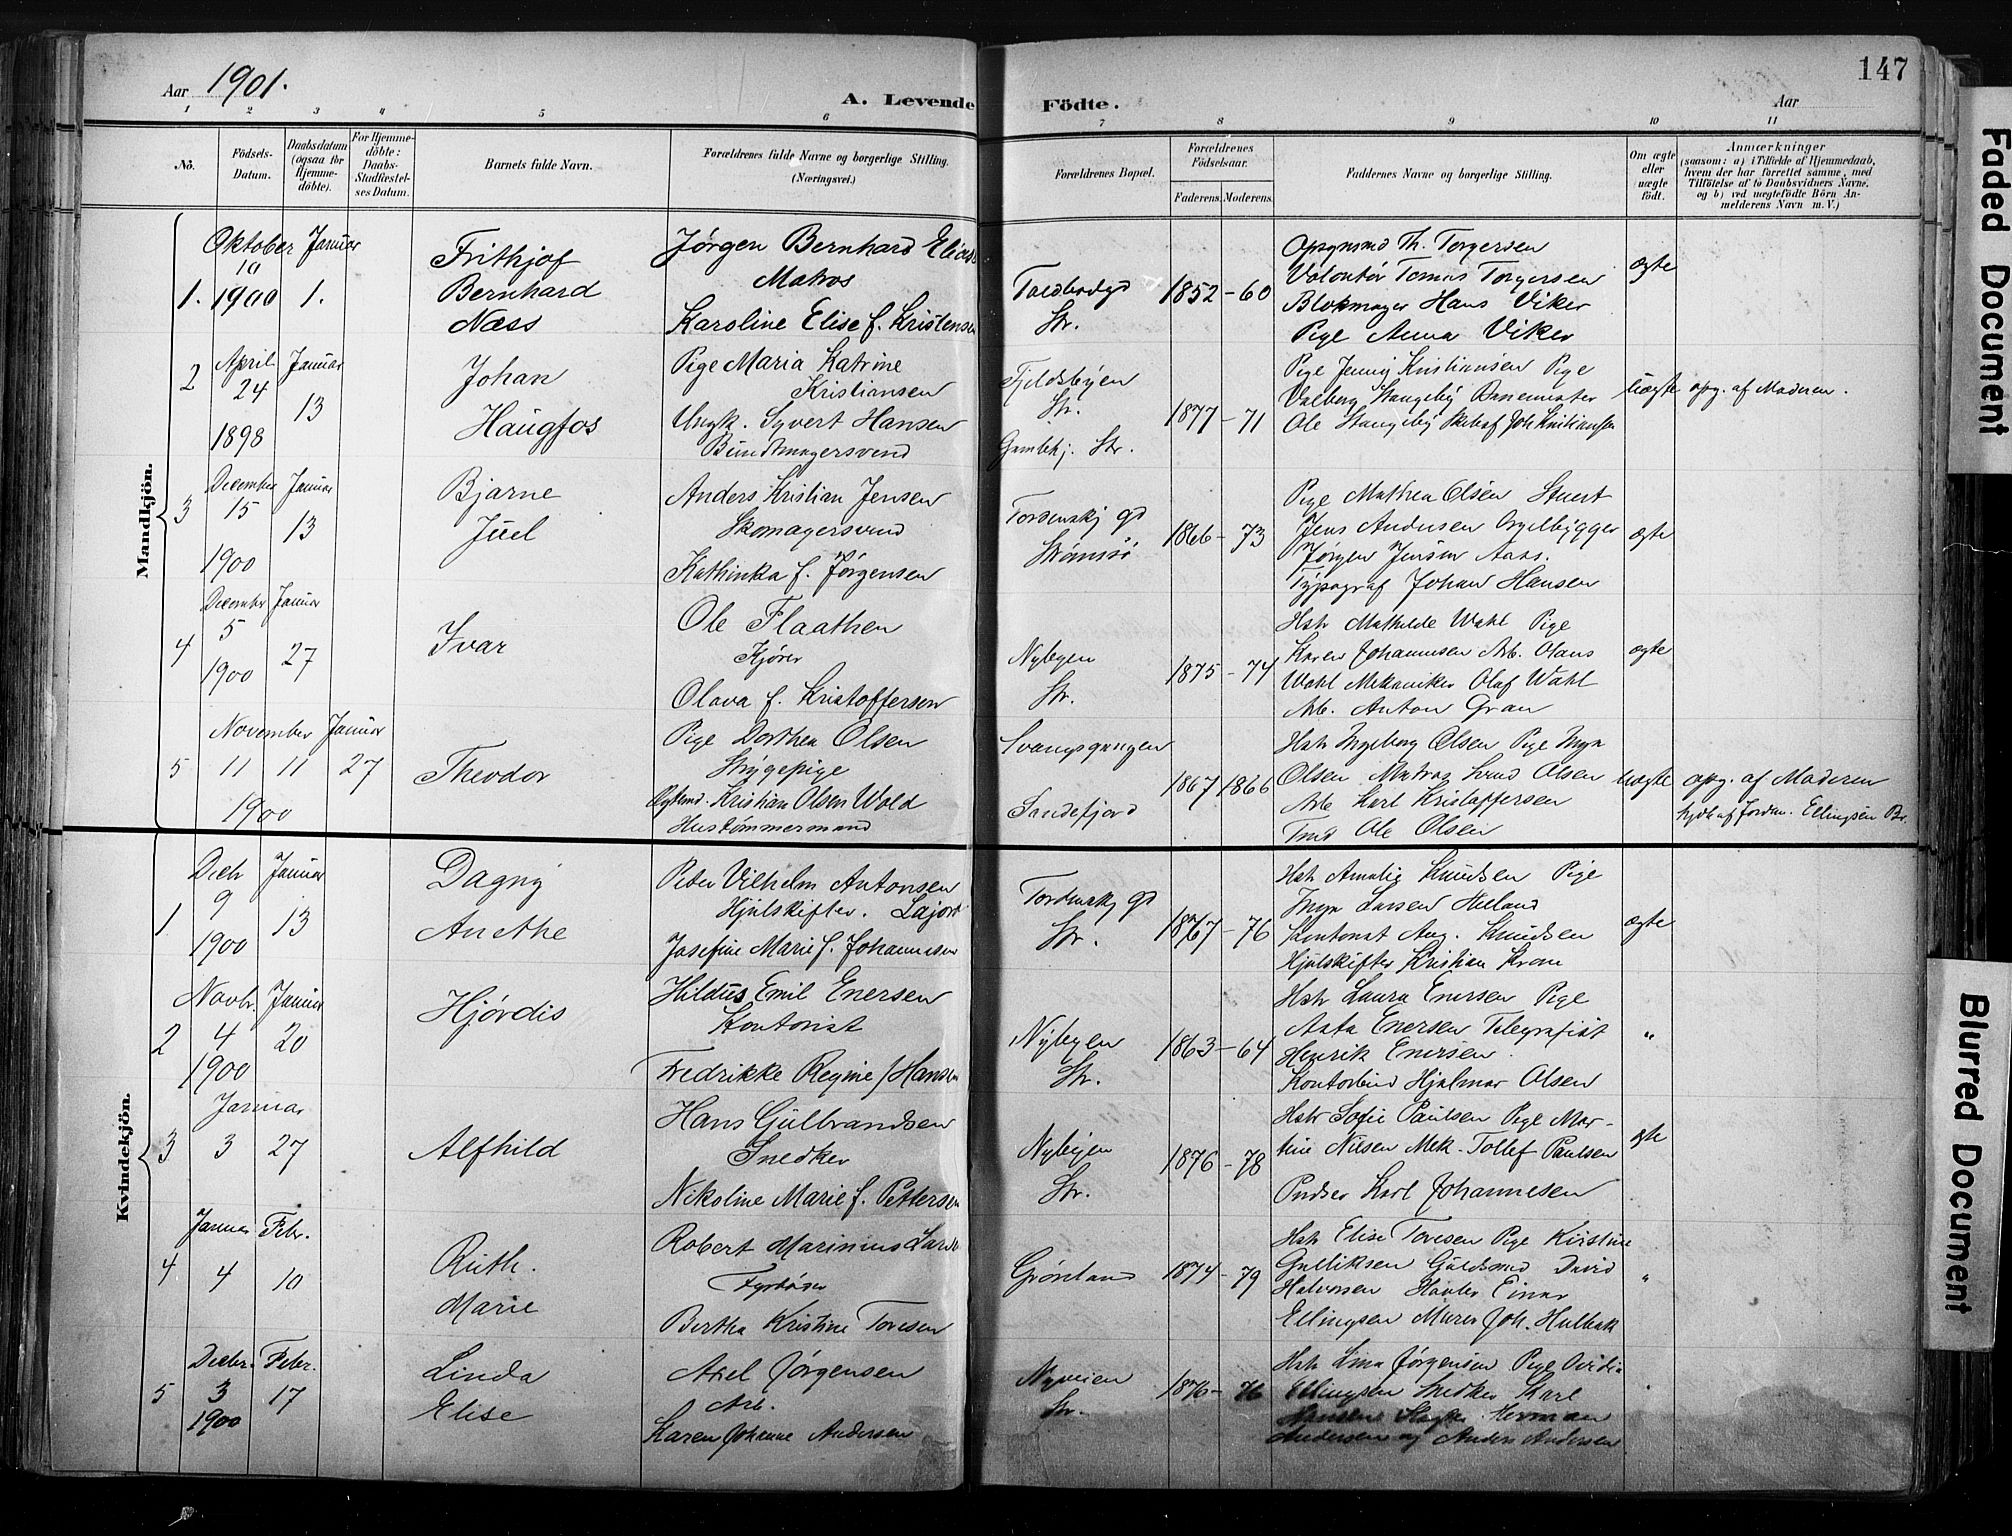 Aar 1901.
A. Levende Födte.
Aar
147
1 2 3 4 5 6 7 8 9 10 11
Nö.
Födsels-Datum.
Daabsdatum (ogsaa for Hjemme-döbte).
For Hjemme-döbte: Daabs-Stadfæstel-ses Datum.
Barnets fulde Navn.
Forældrenes fulde Navne og borgerlige Stilling.
(Næringsvei.)
Forældrenes Bopæl.
Forældrenes Födselsaar.
Faderens. Moderens.
Faddernes Navne og borgerlige Stilling.
Om ægte eller uægte födt.
Anmærkninger
(saasom: a) i Tilfælde af Hjemmedaab,
hvem der har forrettet samme, med
Tilföielse af to Daabsvidners Navne,
og b) ved uægtefödte Börn An-
melderens Navn m. V.)
Mandkjön.
1. Oktober 10 1900
Januar 1.
Frithjof
Bernhard
Næss
Jørgen Bernhard
Matros
Karoline Elise f. Kristensen
Toldbodgd
Str.
1852 - 60
Opsynsmd Th. Torgersen
Volontør Tomas Torgersen
Blokmager Hans Viker
Pige Anna Viker
ægte
2 April 24 1898
Januar 13
Johan
Haugfos
Pige Maria Katrine
Kristiansen
Ungk. Syvert Hansen
Buntmagersvend
Fjeldsbyen
Str.
Gamlekj. Str.
1877 - 71
Pige Jenny Kristiansen Pige
Valborg Stangeby Banemester
Ole Stangeby
uægte
opg. af Moderen.
3 December 15 1900
Januar 13
Bjarne
Juel
Anders Kristian Jensen
Skomagersvend
Kathinka f. Jørgensen
Tordenskj gd
Strømsø
1866 - 73
Pige Mathea Olsen Stuert
Jens Andersen Orgelbygger
Jørgen Jensen Aass.
Typograf Johan Hansen
ægte
4 December 5 1900
Januar 27
Ivar
Ole Flaathen
Kjører
Olava f. Kristoffersen
Nybyen
Str.
1875 - 74
Hstr Mathilde Wahl Pige
Karen Johannesen Arb. Olaus
Wahl Mekaniker Olaf Wahl
Arb. Anton Gran
ægte
5 November 11 1900
11
Januar 27
Theodor
Pige Dorthea Olsen
Strygepige
Kristian Olsen Wold
Hustømmermand
Svangsgangen
Sandefjord
1867 1866
Hstr Ingeborg Olsen Pige Inga
Olsen Matros Olsen
Arb Karl Kristoffersen
Tmd Ole Olsen
uægte
opg. af Moderen
hjdbt af Jordm. Ellingsen Br.
Kvindekjön.
1 Decbr 9 1900
Januar 13
Dagny
Anethe
Peter Vilhelm Antonsen
Hjulskifter.
Josefine Marie f. Johannesen
Tordenskj gd
Str.
1867 - 76
Hstr Amalie Knudsen Pige
Inga Larsen Heland
Kontorist Aug. Knudsen
Hjulskifter Kristian Kran
ægte
2 Novbr. 4 1900
Januar 20
Hjørdis
Hildus Emil Enersen
Kontorist
Fredrikke Regine f Hansen
Nybyen
Str.
1863 - 64
Hstr Laura Enersen Pige
Asta Enersen Telegrafist
Henrik Enersen.
Kontorbud Hjalmar Olsen
"
3 Januar 3
27
Alfhild
Hans Gulbrandsen
Snedker
Nikoline Marie f. Pettersen
Nybyen
Str.
1876 - 78
Hstr Sofie Paulsen Pige Mar-
tine Nilsen Mek. Tollef Paulsen
Pudser Karl Johannesen
ægte
4 Januar 4
Febr. 10
Ruth.
Marie
Robert Marinius
Fyrbøder
Bertha Kristine Toresen
Grønland
1874 - 79
Hstr Elise Toresen Pige Kirstine
Gulliksen Guldsmd David
Halvorsen Einar
Ellingsen Murer Joh. Hulbak
"
5 Decbr. 3 1900
Febr. 17
Linda
Elise
Axel Jørgensen
Arb.
Karen Johanne Andersen
Nyveien
Str.
1876 - 76
Hstr Lina Jørgensen Pige
Ellingsen Snedker Karl
Hansen Herman
Andersen og Anders Andersen
Faded Document
Blurred Document